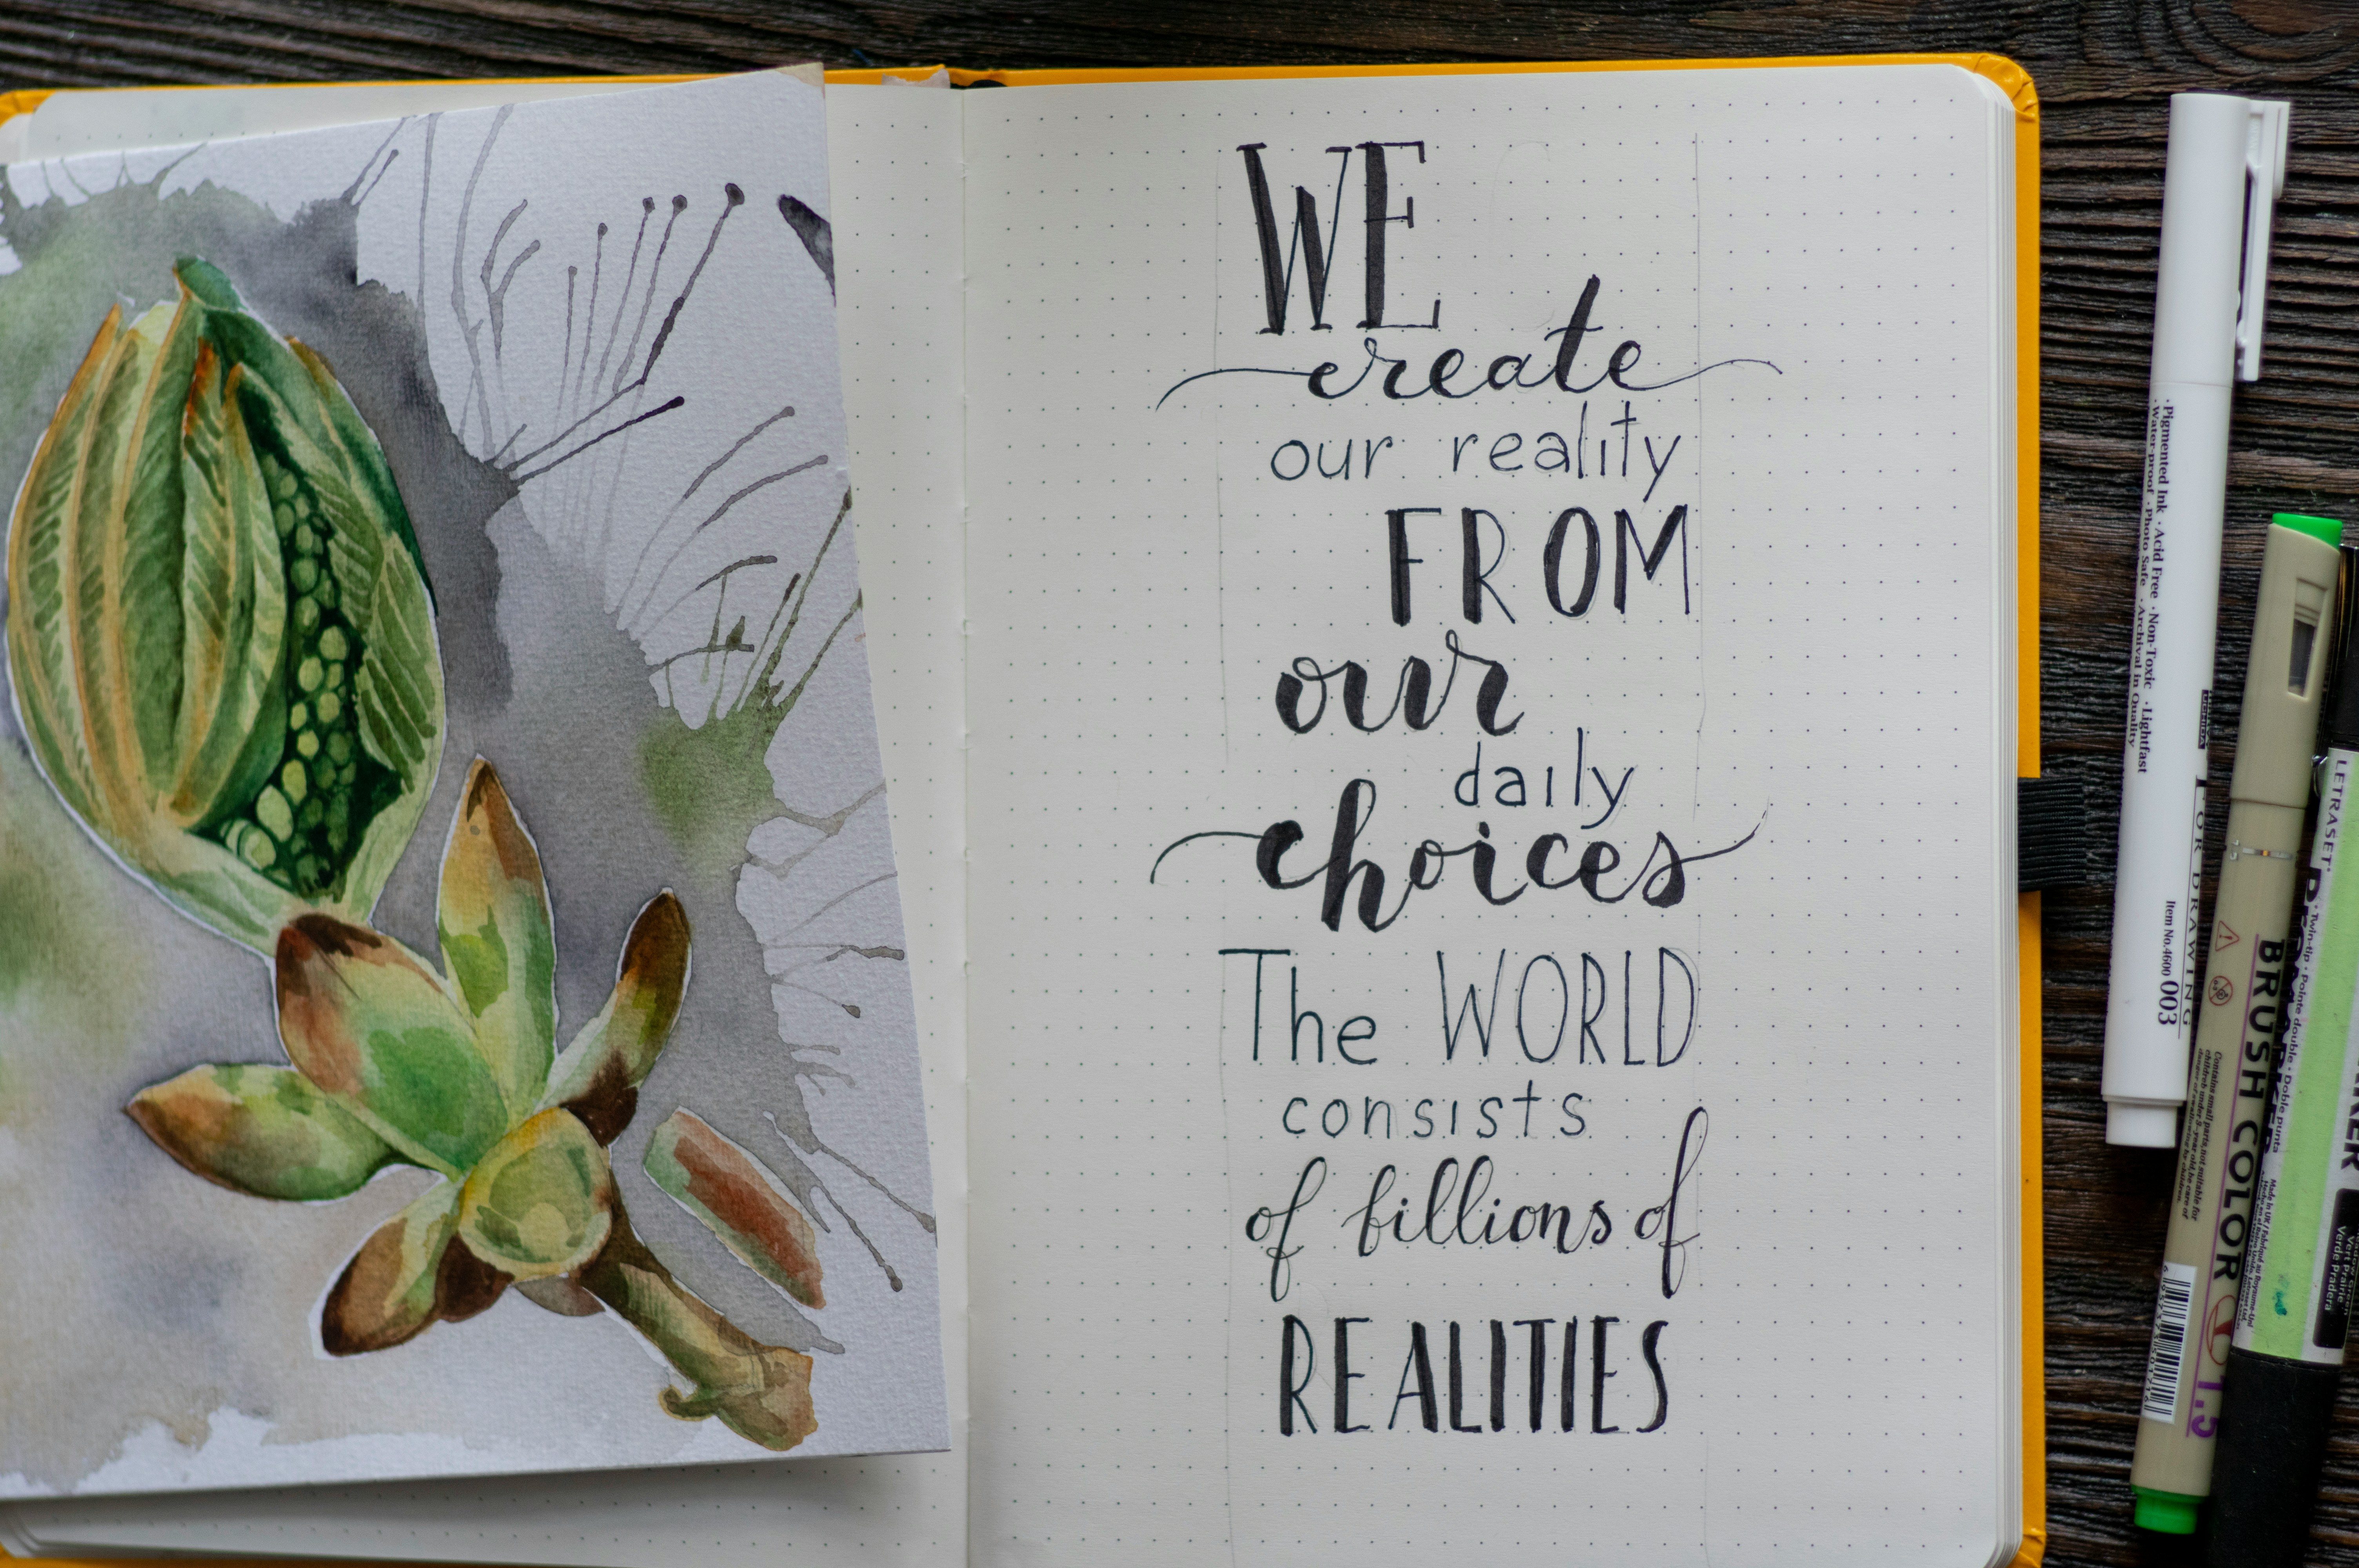 WE
create
our reality
FROM
our
daily
choices
The WORLD
consists
of billions of
REALITIES
· Pigmented Ink · Acid Free · Non-Toxic · Lightfast
· Water-proof · Photo Safe · Archival in Quality
FOR DRAWING
Item No.4600 003
BRUSH COLOR
1.5
LETRASET
Twin-tip · pointe double · Doble punta
Vert prairie
Verde Pradera